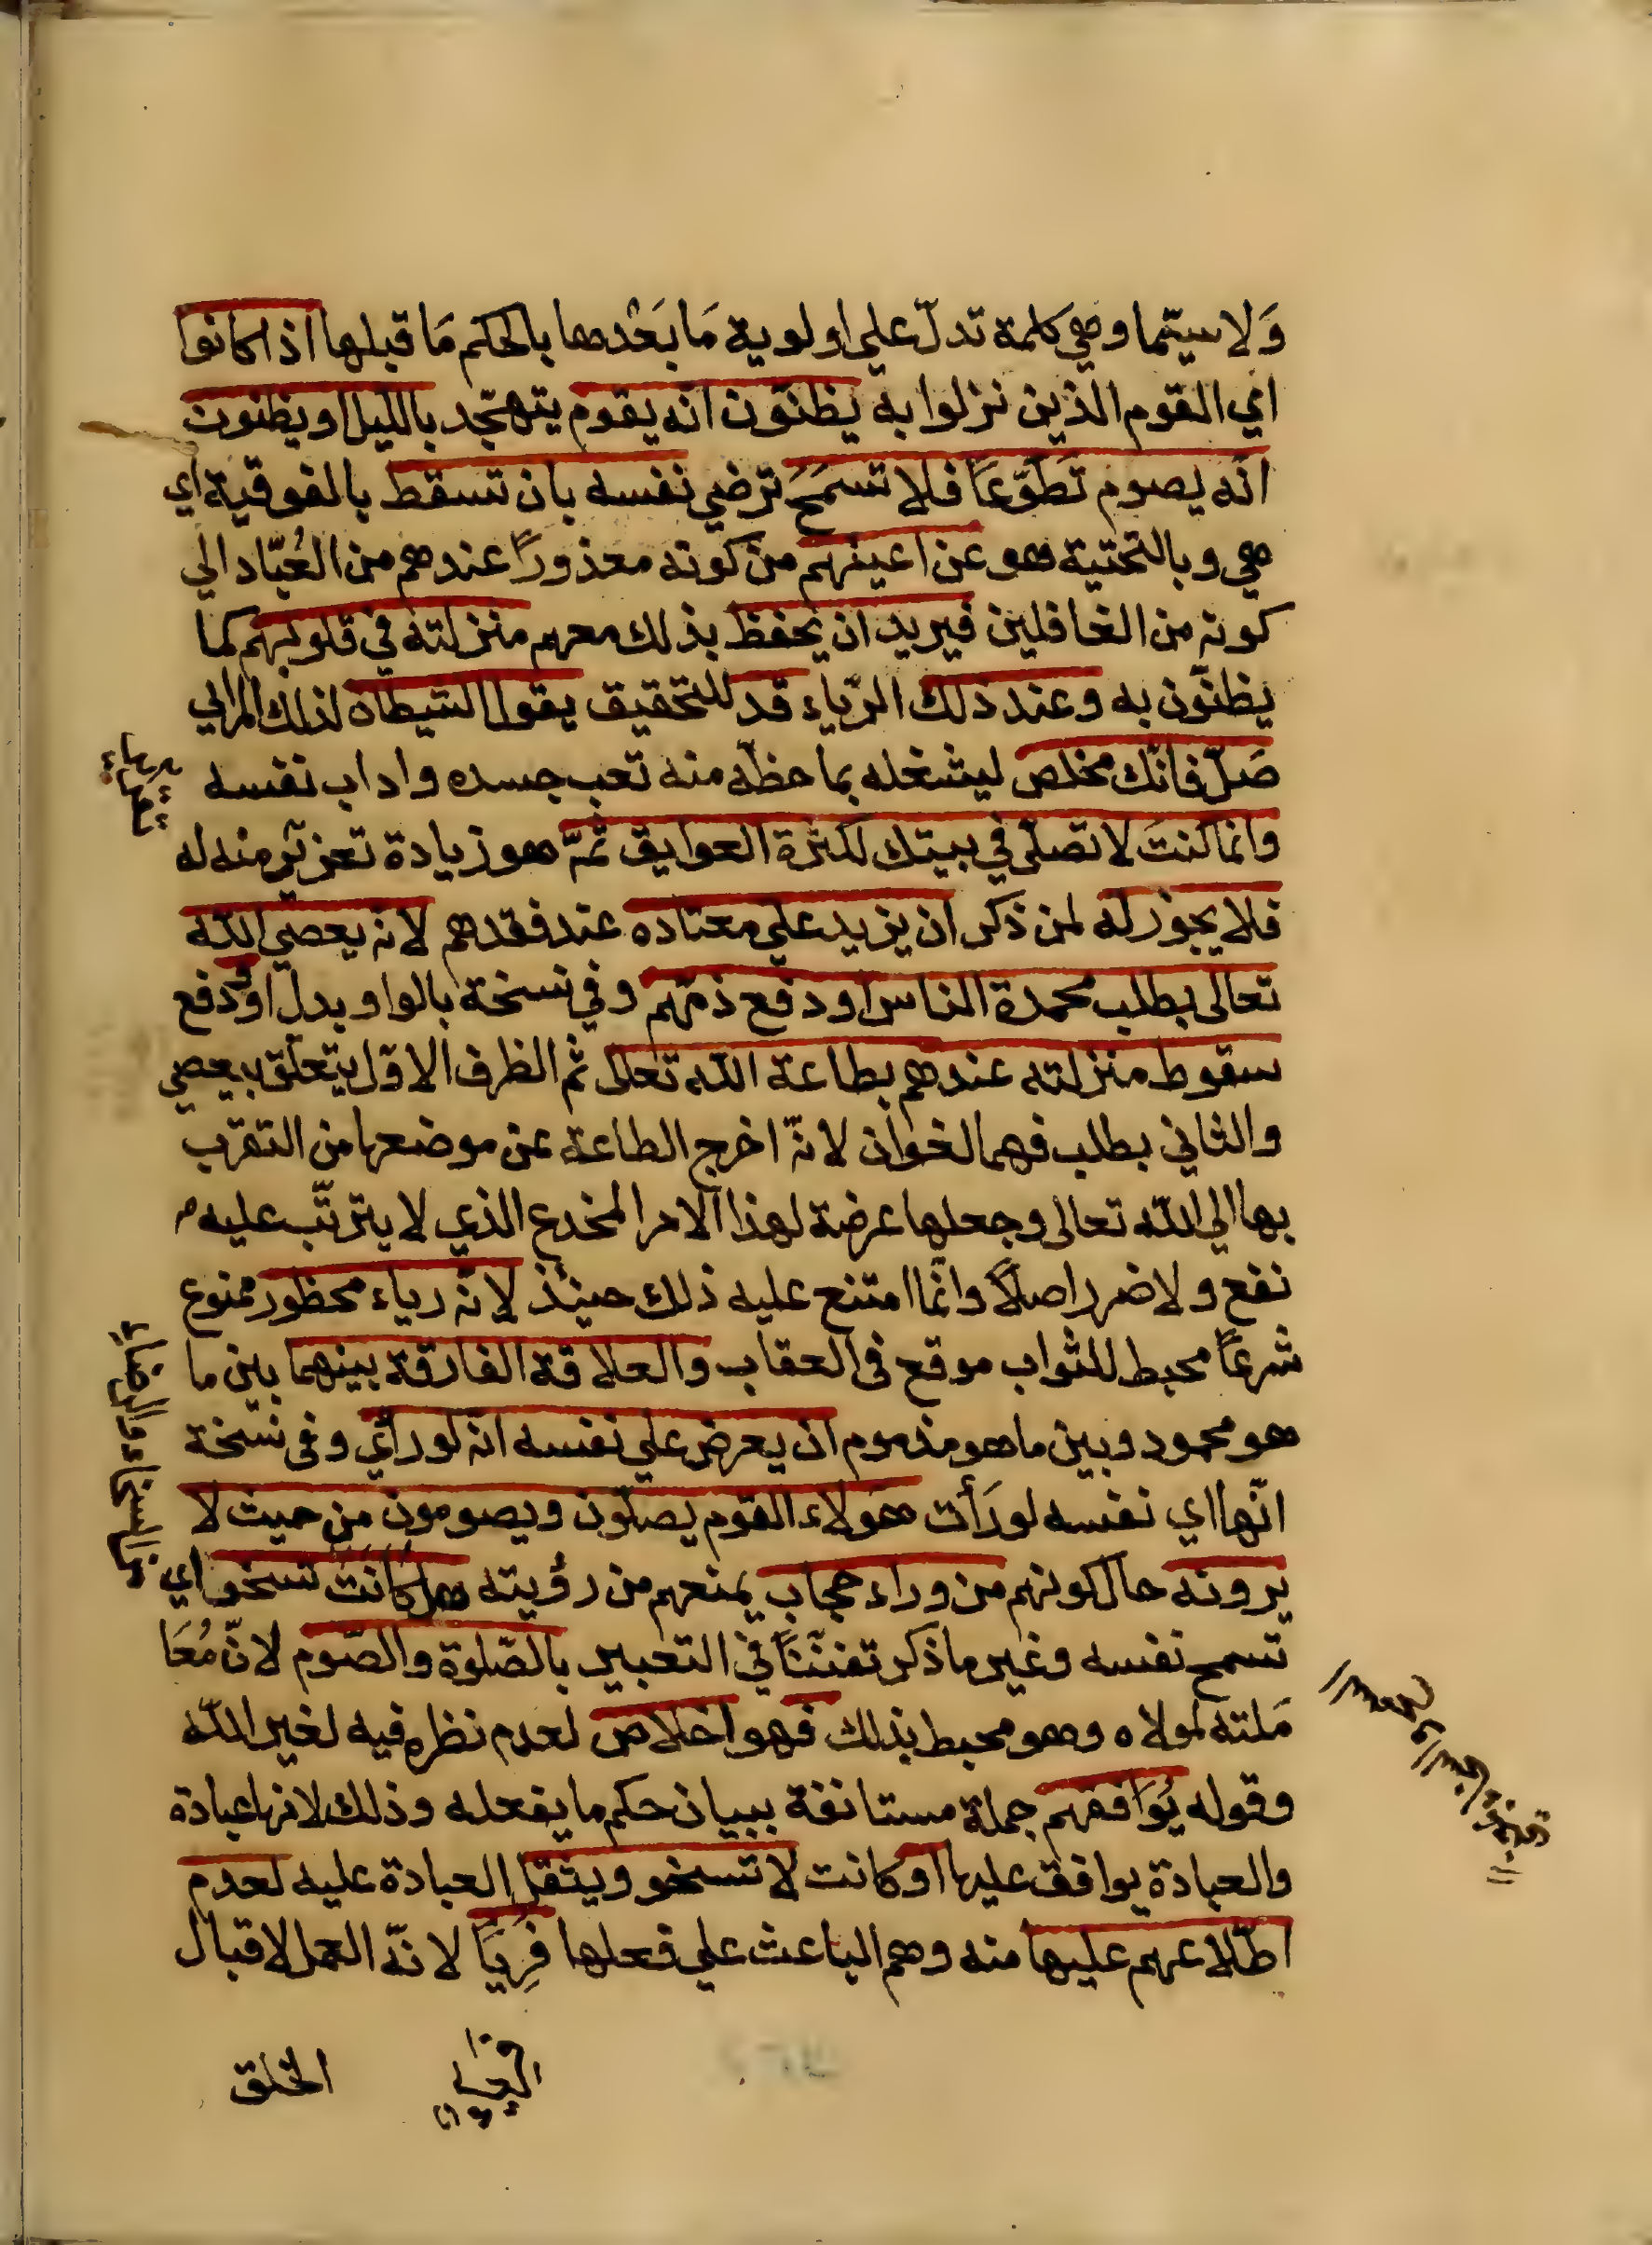 وَلا سيّما وهي كلمة تدلّ علي اولوية مَا بَعْدها بالحكم مَا قبلها اذا كانوا
اي القوم الذين نزلوا به يظنّون انه يقوم يتهجّد بالليل او يظنون
انّه يصوم تَطَوّعًا فلا تسمَحُ ترضي نفسه بان تسقط بالفوقية اي
هي وبالتحتية هو عن اعينهم من كونه معذورًا عندهم من العُبّاد الي
كونه من الغافلين فيريد ان يحفظ بذلك معهم منزلته في قلوبهم كما
يظنّون به وعند ذلك الرّياء قد للتحقيق يقول الشيطان لذلك المرائي
صَلّ فانّك مخلص ليشغله بما حظّه منه تعب جسده واداب نفسه
وانما كنتَ لا تصلّي في بيتك لكثرة العوايق ثمّ هو زيادة تعزير منه له
فلا يجوز له لمن ذكر ان يزيد علي معتاده عند فقدهم لانه يعصي الله
تعالى بطلب محمدة الناس او دفع ذمّهم وفي نسخة بالواو بدل او ودفع
سقوط منزلته عندهم بطاعة الله تعالى ثم الظرف الاوّل يتعلّق بيعصي
والثاني بطلب فهما لغوان لانّه اخرج الطاعة عن موضعها من التقرّب
بها الي الله تعالى وجعلها عرضة لهذا الامر المخدع الذي لا يترتّب عليه
نفع ولا ضرر اصلاً وانّما امتنع عليه ذلك حينئذ لانّه رياء محظور ممنوع
شرعًا محبط للثواب موقع في العقاب والعلاقة الفارقة بينهما بين ما
هو محمود وبين ما هو مذموم ان يعرض علي نفسه انّه لو رأي وفي نسخة
انّها اي نفسه لو رَأت هؤلاء القوم يصلّون ويصومون من حيث لا
يرونه حال كونهم من وراء حجاب يمنعهم من رؤيته هل كانَتْ تسخو اي
تسمح نفسه وغير ما ذكر تفنّنًا في التعبير بالصّلوة والصّوم لانّ مُعَا
مَلته لمولاه وهو محيط بذلك فهو اخلاص لعدم نظره فيه لغير الله
وقوله يُوَافقهم جملة مستانفة ببيان حكم ما يفعله وذلك لانها عبادة
والعبادة يوافق عليها او كانت لا تسخو ويثقل العبادة عليه لعدم
اطّلاعهم عليها منه وهم الباعث علي فعلها فَرِيَا لانّه العمل لاقبال
الخلق